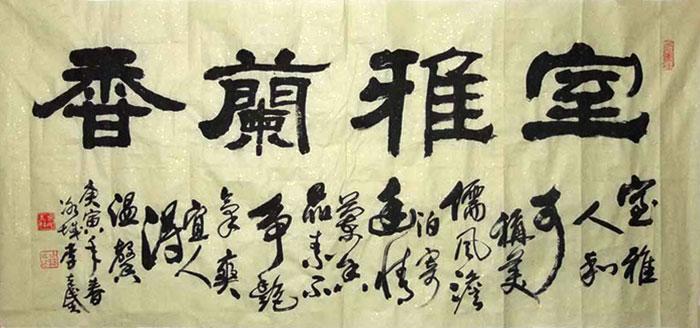 室雅蘭香
室雅
人和
可
稱美
儒風澹
泊寄
逸情
蘭香
品素不
爭艷
氣爽
宜人
得
溫馨
庚寅年春
城李